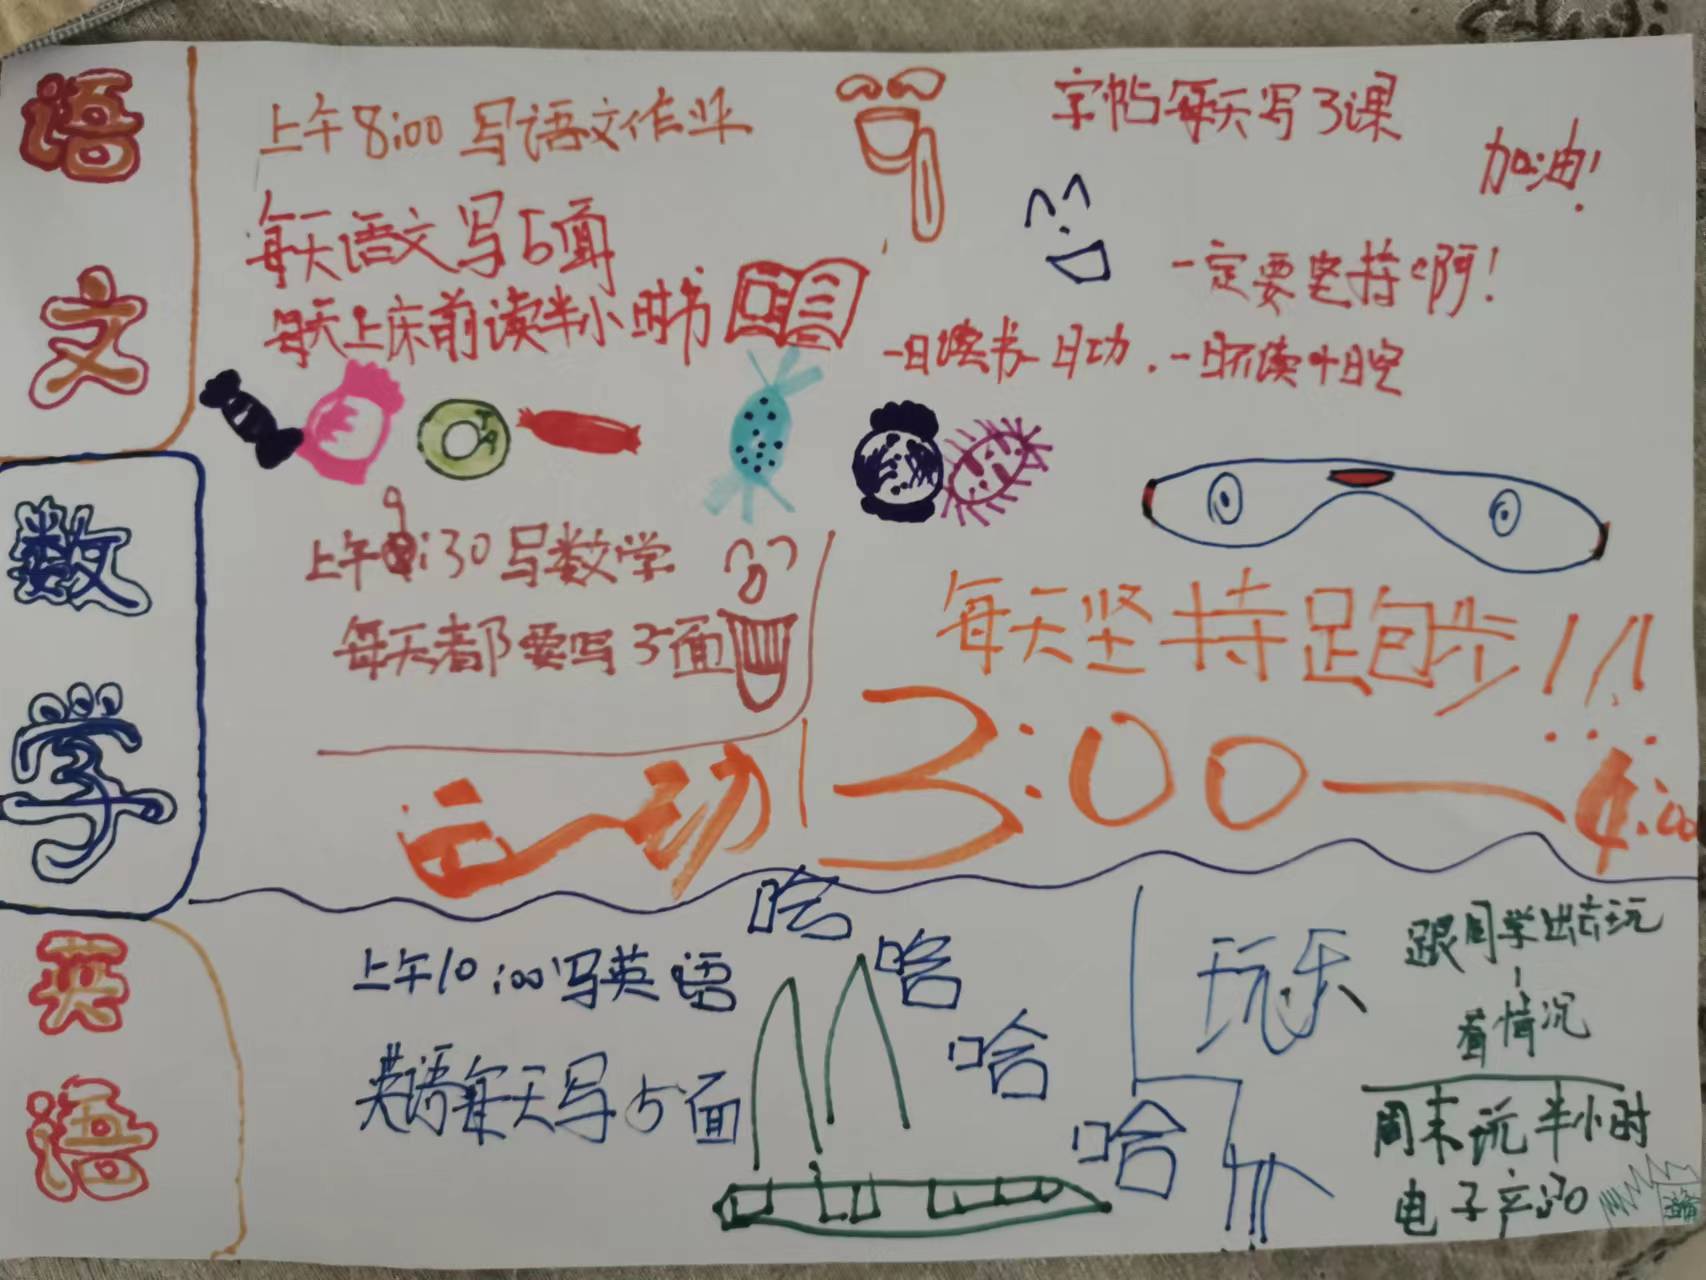 语文
上午8:00 写语文作业
每天语文写5面
每天上床前读半小时书
字帖每天写3课
加油!
一定要坚持啊!
一日读书一日功.一日不读十日空
数学
上午9:30写数学
每天都要写5面
每天坚持跑步!!!
运动
3:00—4:00
英语
上午10:00写英语
英语每天写5面
哈
哈
哈
哈
玩乐
跟同学出去玩
看情况
周末玩半小时
电子产品